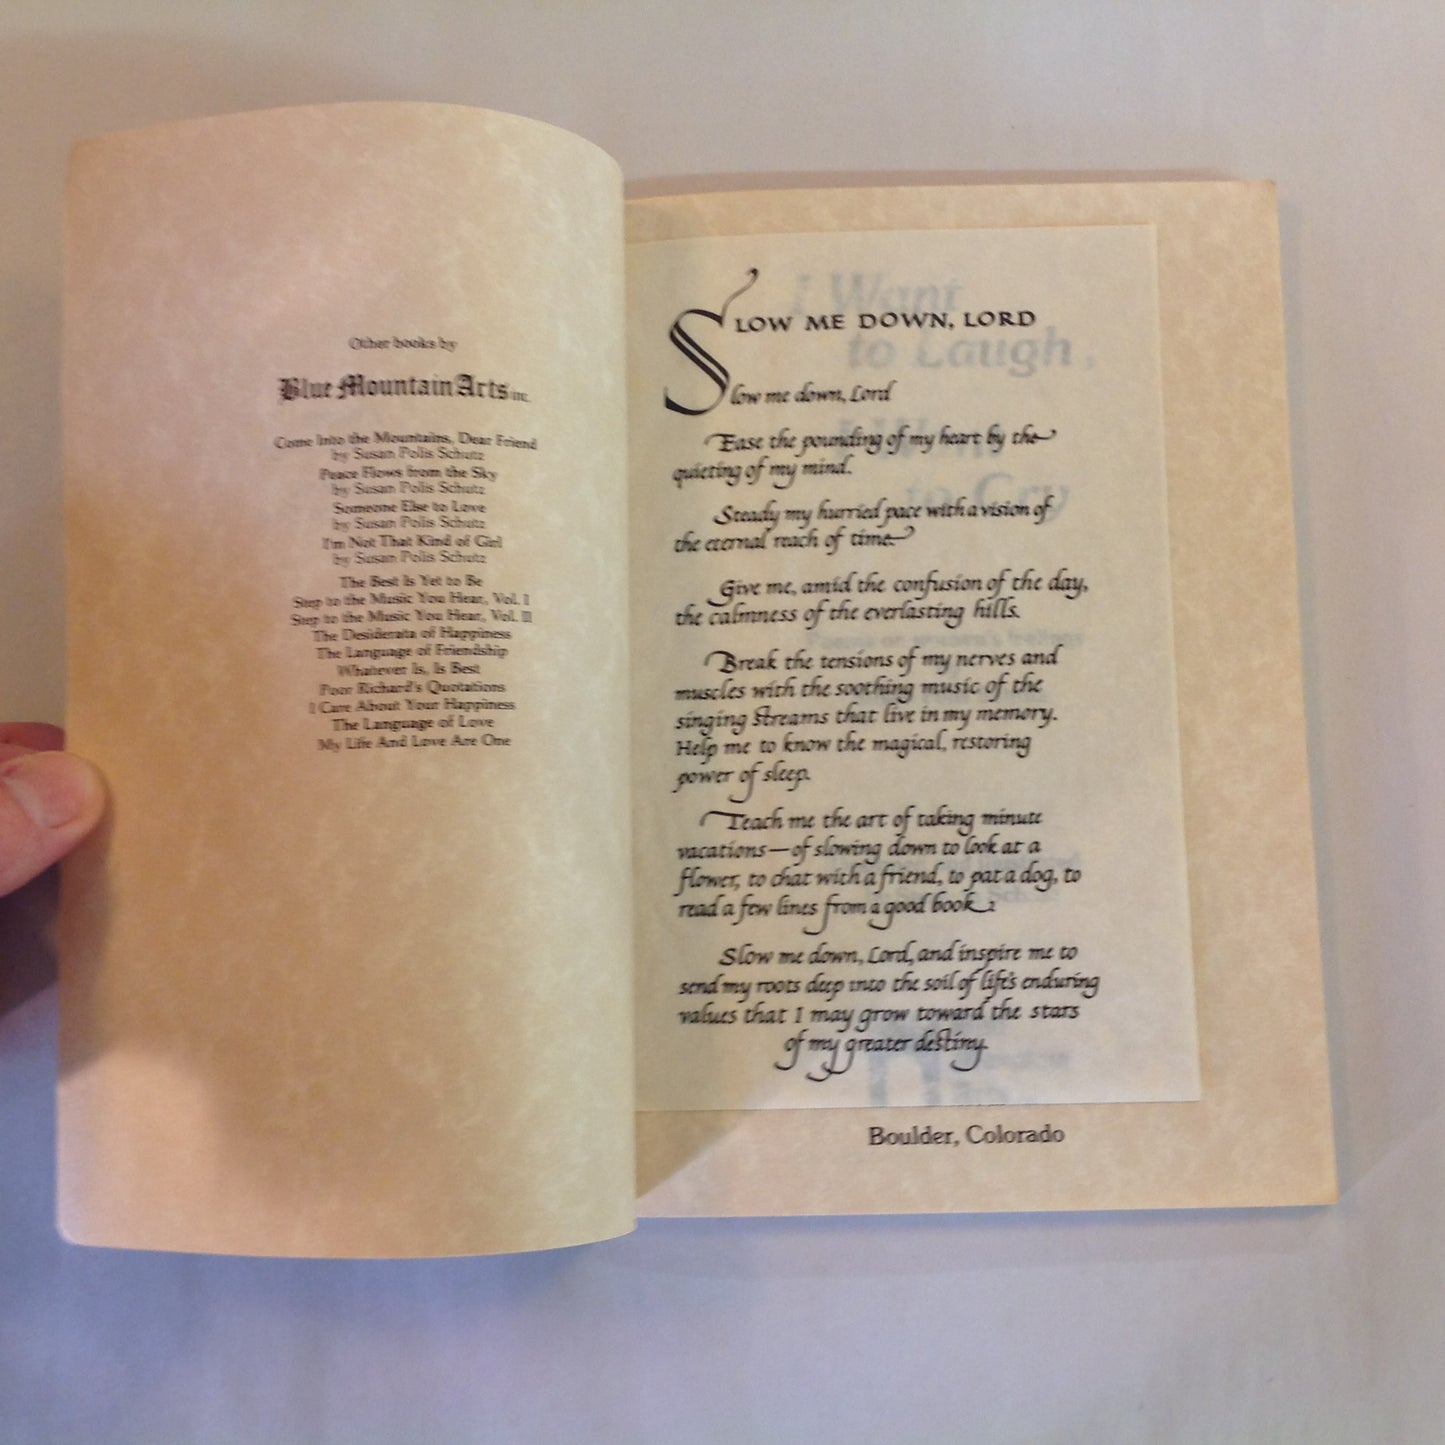 Other books by
Blue Mountain Arts inc.
Come Into the Mountains, Dear Friend
by Susan Polis Schutz
Peace Flows from the Sky
by Susan Polis Schutz
Someone Else to Love
by Susan Polis Schutz
I'm Not That Kind of Girl
by Susan Polis Schutz
The Best Is Yet to Be
Step to the Music You Hear, Vol. I
Step to the Music You Hear, Vol. II
The Desiderata of Happiness
The Language of Friendship
Whatever Is, Is Best
Poor Richard's Quotations
I Care About Your Happiness
The Language of Love
My Life And Love Are One
SLOW ME DOWN, LORD
Slow me down, Lord
Ease the pounding of my heart by the
quieting of my mind.
Steady my hurried pace with a vision of
the eternal reach of time.
Give me, amid the confusion of the day,
the calmness of the everlasting hills.
Break the tensions of my nerves and
muscles with the soothing music of the
singing streams that live in my memory.
Help me to know the magical, restoring
power of sleep.
Teach me the art of taking minute
vacations—of slowing down to look at a
flower, to chat with a friend, to pat a dog, to
read a few lines from a good book.
Slow me down, Lord, and inspire me to
send my roots deep into the soil of life's enduring
values that I may grow toward the stars
of my greater destiny.
I Want
to Laugh,
to Cry
Boulder, Colorado